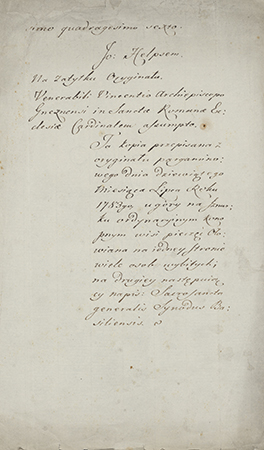 simo quadragesimo sexto.
Jo: Helpsem.
Na zatyłku Oryginału.
Venerabili Vincentio Archiepiscopo
Gneznensi in Sanctæ Romanæ Ec-
clesiæ Cardinalem assumpto.
Ta kopia przepisana z
oryginału pargamino-
wego dnia dziewiątego
Miesiąca Lipca Roku
1783go, u góry na sznu-
ku ordynaryinym kono-
pnym wisi pieczęć Oło-
wiana na iedney stronie
wiele osob wybitych,
na drugiey następuią-
cy napis: Sacrosancta
generalis Synodus Ba-
siliensis.